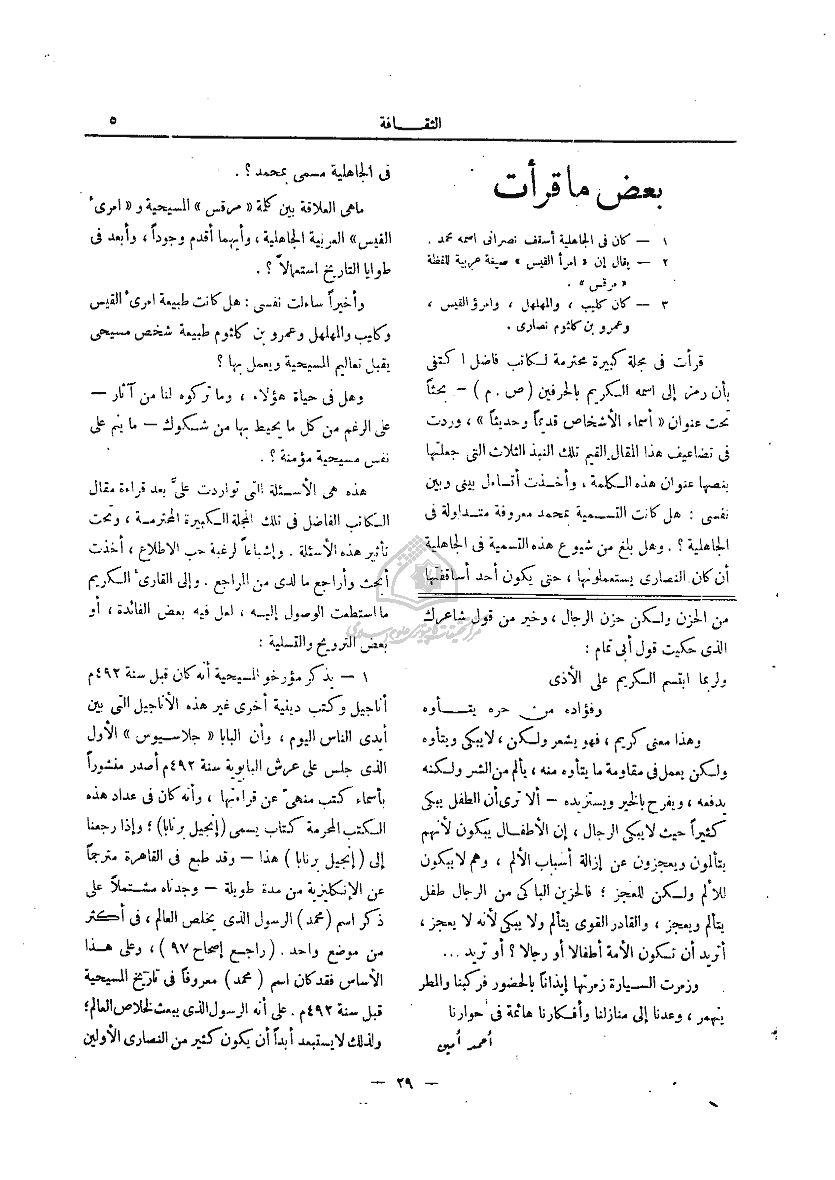 الثقافة
٥
بعض ما قرأت
١ — كان فى الجاهلية أسقف نصرانى اسمه محمد .
٢ — يقال إن « امرأ القيس » صيغة عربية للفظة
« مرقس » .
٣ — كان كليب ، والمهلهل ، وامرؤ القيس ،
وعمرو بن كلثوم نصارى .
قرأت فى مجلة كبيرة محترمة لكاتب فاضل اكتفى
بأن رمز إلى اسمه الكريم بالحرفين ( ص . م ) — بحثاً
تحت عنوان « أسماء الأشخاص قديماً وحديثاً » ، وردت
فى تضاعيف هذا المقال القيم تلك النبذ الثلاث التى جعلتها
بنصها عنوان هذه الكلمة ، وأخذت أتساءل بينى وبين
نفسى : هل كانت التسمية بمحمد معروفة متداولة فى
الجاهلية ؟ . وهل بلغ من شيوع هذه التسمية فى الجاهلية
أن كان النصارى يستعملونها ، حتى يكون أحد أساقفتها
من الحزن ولكن حزن الرجال ، وخير من قول شاعرك
الذى حكيت قول أبى تمام :
ولربما ابتسم الكريم على الأذى
وفؤاده من حره يتأوه
وهذا معنى كريم ، فهو يشعر ولكن ، لا يبكى ويتأوه
ولكن يعمل فى مقاومة ما يتأوه منه ، يألم من الشر ولكنه
يدفعه ، ويفرح بالخير ويستزيده — ألا ترى أن الطفل يبكى
كثيراً حيث لا يبكى الرجال ، إن الأطفال يبكون لأنهم
يتألمون ويعجزون عن إزالة أسباب الألم ، وهم لا يبكون
للألم ولكن للعجز ؛ فالحزين الباكى من الرجال طفل
يتألم ويعجز ، والقادر القوى يتألم ولا يبكى لأنه لا يعجز ،
أتريد أن تكون الأمة أطفالا أو رجالا ؟ أو تريد ...
وزمرت السيارة زمرتها إيذاناً بالحضور فركبنا والمطر
ينهمر ، وعدنا إلى منازلنا وأفكارنا هائمة فى حوارنا
أحمد أمين
فى الجاهلية مسمى بمحمد ؟ .
ماهى العلاقة بين كلمة « مرقس » المسيحية و « امرىء
القيس » العربية الجاهلية ، وأيهما أقدم وجوداً ، وأبعد فى
طوايا التاريخ استعمالاً ؟ .
وأخيراً ساءلت نفسى : هل كانت طبيعة امرىء القيس
وكليب والمهلهل وعمرو بن كلثوم طبيعة شخص مسيحى
يقبل تعاليم المسيحية ويعمل بها ؟
وهل فى حياة هؤلاء ، وما تركوه لنا من آثار —
على الرغم من كل ما يحيط بها من شكوك — ما ينم على
نفس مسيحية مؤمنة ؟ .
هذه هى الأسئلة التى تواردت علىَّ بعد قراءة مقال
الكاتب الفاضل فى تلك المجلة الكبيرة المحترمة ، وتحت
تأثير هذه الأسئلة . وإشباعاً لرغبة حب الاطلاع ، أخذت
أبحث وأراجع ما لدى من المراجع . وإلى القارىء الكريم
ما استطعت الوصول إليه ، لعل فيه بعض الفائدة ، أو
بعض الترويح والتسلية :
١ — يذكر مؤرخو المسيحية أنه كان قبل سنة ٤٩٢م
أناجيل وكتب دينية أخرى غير هذه الأناجيل التى بين
أيدى الناس اليوم ، وأن البابا « جلاسيوس » الأول
الذى جلس على عرش البابوية سنة ٤٩٢م أصدر منشوراً
بأسماء كتب منهى عن قراءتها ، وأنه كان فى عداد هذه
الكتب المحرمة كتاب يسمى (إنجيل برنابا) ؛ وإذا رجعنا
إلى ( إنجيل برنابا ) هذا — وقد طبع فى القاهرة مترجماً
عن الإنكليزية من مدة طويلة — وجدناه مشتملاً على
ذكر اسم (محمد) الرسول الذى يخلص العالم ، فى أكثر
من موضع واحد . ( راجع إصحاح ٩٧ ) ، وعلى هذا
الأساس فقد كان اسم ( محمد ) معروفاً فى تاريخ المسيحية
قبل سنة ٤٩٢م . على أنه الرسول الذى يبعث لخلاص العالم ؛
ولذلك لا يستبعد أبداً أن يكون كثير من النصارى الأولين
— ٢٩ —